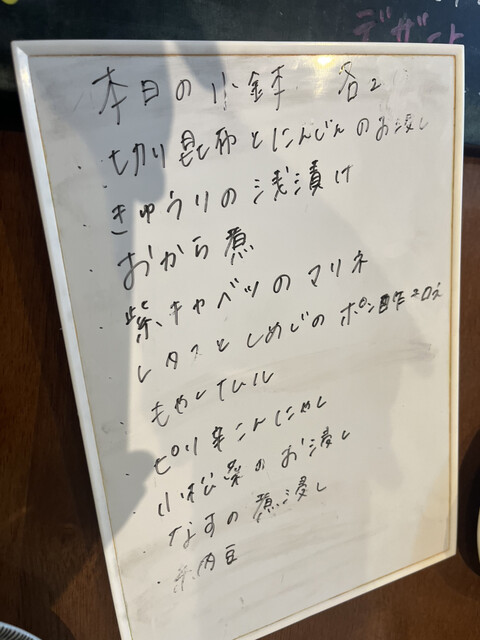 デザート
本日の小鉢 各2
・切り昆布とにんじんのお浸し
・きゅうりの浅漬け
・おから煮
・紫キャベツのマリネ
・レタスとしめじのポン酢
・もやしナムル
・ピリ辛こんにゃく
・小松菜のお浸し
・なすの煮浸し
・納豆